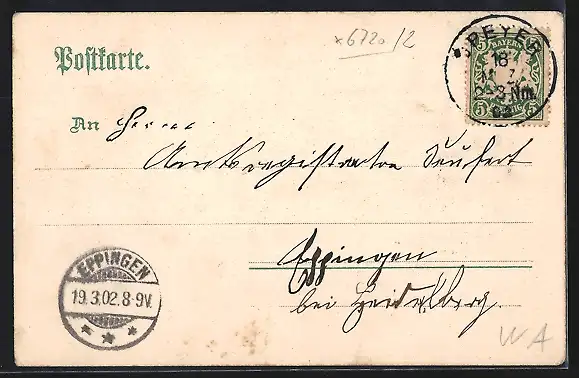 x6720/2
Postkarte.
SPEYER
18
3 Nm
BAYERN
5 5
An Herrn
Amtsregistrator Seufert
Eppingen
bei Heidelberg.
EPPINGEN
19.3.02.8-9V.
WA